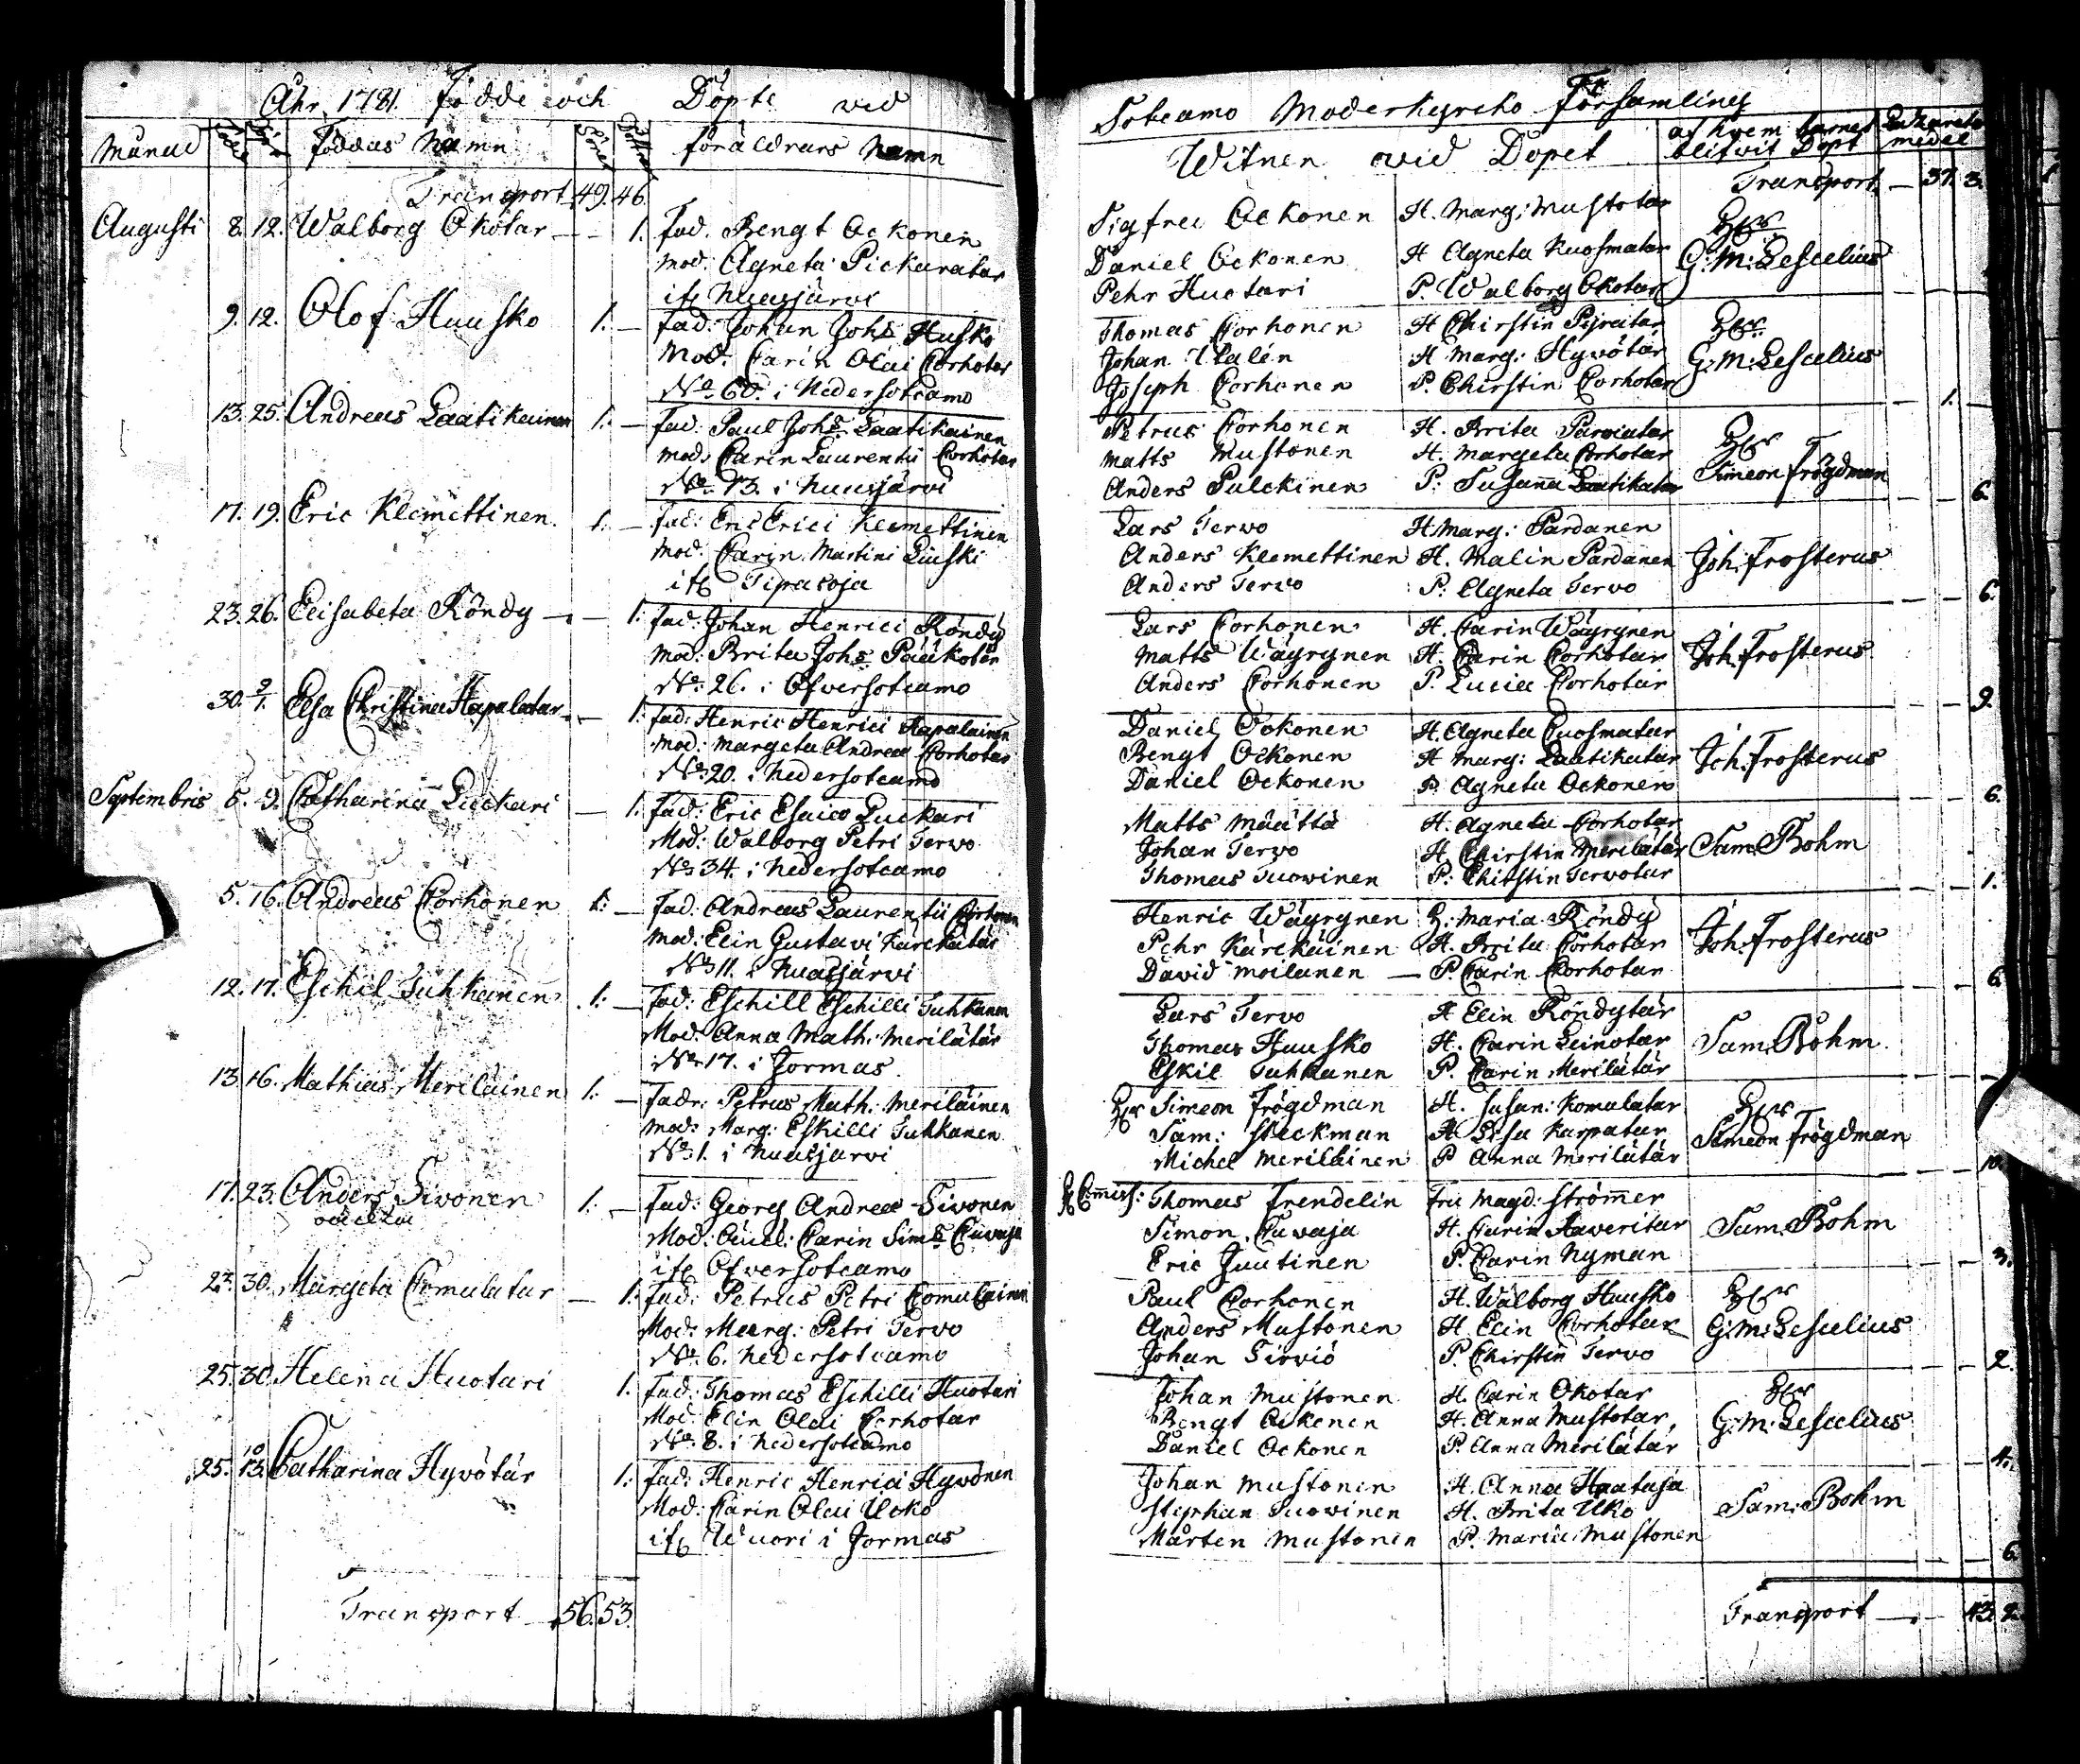 Åhr 1781. Födde och Döpte vid
Månad Födde Döpte Föddas Namn Söner Döttrar föräldrars Namn
Transport 49. 46.
Augusti 8. 12. Walborg Okotar — — 1. fad. Bengt Ockonen
Mod: Agneta Pickaratar
itq Nuasjärvi
9. 12. Olof Huusko 1. — fad: Johan Johs Husko
Mod: Carin Olai Corhotar
No 60. i Nedersotcamo
13. 25. Andreas Laatikainen 1. — fad: Paul Johs Laatikainen
Mod: Carin Laurentii Corhotar
No 13. i Nuasjärvi
17. 19. Eric Klemettinen. 1. — fad: Eric Erici Klemettinen
Mod: Carin Martini Liuski
itq Tipasoja
23. 26. Elisabeta Röndy — — 1: fad: Johan Henrici Röndy
Mod: Brita Johs Pääkotar
No 26. i Öfversotcamo
30. 9/1. Elsa Christina Hapalatar — 1: fad: Henric Henrici Hapalainen
Mod: Margeta Andreæ Corhotar
No 20. i Nedersotcamo
Septembris 5. 9. Catharina Luckari — 1: fad: Eric Esaiæ Luckari
Mod: Walborg Petri Tervo
No 34. i Nedersotcamo
5. 16. Andreas Corhonen 1: — fad: Andreas Laurentii Corhonen
Mod: Elin Gustavi Kärckätär
No 11. i Nuasjärvi
12. 17. Eschil Tuhkanen 1: — fad: Eschill Eschilli Tuhkanen
Mod: Anna Math: Merilätär
No 17. i Jormas.
13. 16. Mathias Meriläinen 1: — fadr: Petrus Math: Meriläinen
Mod: Marg: Eskilli Tuhkanen
No 1. i Nuasjärvi
17. 23. Anders Sivonen 1: — fad: Georg Andreæ Sivonen
oäckta
Mod: Carin Sims Cuvaja
itq Öfversotcamo
23. 30. Margeta Comulatar — 1: fad: Petrus Petri Comulainen
Mod: Marg: Petri Tervo
No 6. Nedersotcamo
25. 30. Helena Huotari 1. fad: Thomas Eschilli Huotari
Mod. Elin Olai Corhotar
No 8. i Nedersotcamo
25. 10/13. Catharina Hyvötär 1: fad: Henric Henrici Hyvönen
Mod: Carin Olai Ucko
itq Wuori i Jormas
Transport 56. 53.
Sotcamo Moderkyrcko Församling
Witnen vid Dopet af hvem barnet blifvit Döpt medel
Transport — 37. 3.
Sigfred Ockonen H. Marg: Mustotar
Daniel Ockonen H Agneta Kuosmatar G: M: Lescelius
Pehr Huotari P. Walborg Okotar
Thomas Corhonen H Chirstin
Johan H Marg: Hyvötär G: M: Lescelius
Joseph Corhonen P. Chirstin Corhotar
1.
Petrus Corhonen H. Brita Parviatar
Matts Mustonen H. Margeta Corhotar Simeon Frögdman
Anders Pulckinen P: Susanna Laatikatar
6.
Lars Tervo H Marg: Pardanen
Anders Klemettinen H. Malin Pardanen Joh: Frosterus
Anders Tervo P: Agneta Tervo
6.
Lars Corhonen H. Carin Wäyrynen
Matts Wäyrynen H. Carin Corhotar Joh: Frosterus
Anders Corhonen P. Lucia Corhotar
9.
Daniel Ockonen H. Agneta Cuosmatar
Bengt Ockonen H Marg: Laatikatar Joh: Frosterus
Daniel Ockonen P. Agneta Ockonen
6.
Matts Määttä H. Agneta Corhotar
Johan Tervo H. Chirstin Merilätär Sam: Bohm
Thomas Tuovinen P: Chirstin Tervotar
1.
Henric Wäyrynen H: Maria Röndy
Pehr Kärckäinen H. Brita Corhotar Joh: Frosterus
David Moilanen — P. Carin Corhotar
6.
Lars Tervo H Elin Röndytär
Thomas Huusko H. Carin Leinotar Sam: Bohm
Eskil Tuhkanen P. Carin Merilätär
Simeon Frögdman H. Susan: Komulatar
Sam: Steckman H Elsa Karpatar Simeon Frögdman
Michel Meriläinen P Anna Merilätär
10.
Thomas Frendelin Fru Magd: Strömer
Simon Cuvaja H. Carin Haveritar Sam: Bohm
Eric Juutinen P. Carin Nyman
3.
Paul Corhonen H. Walborg Huusko
Anders Mustonen H Elin Corhotar G: M: Lescelius
Johan Sirviö P. Chirstin Tervo
2.
Johan Mustonen H. Carin Okotar
Bengt Ockonen H. Anna Mustotar G: M: Lescelius
Daniel Ockonen P. Anna Merilätär
4.
Johan Mustonen H. Anna Haataja
Stephan Tuovinen H. Brita Uko Sam: Bohm
Mårten Mustonen P. Maria Mustonen
6.
Transport — 43. 2.